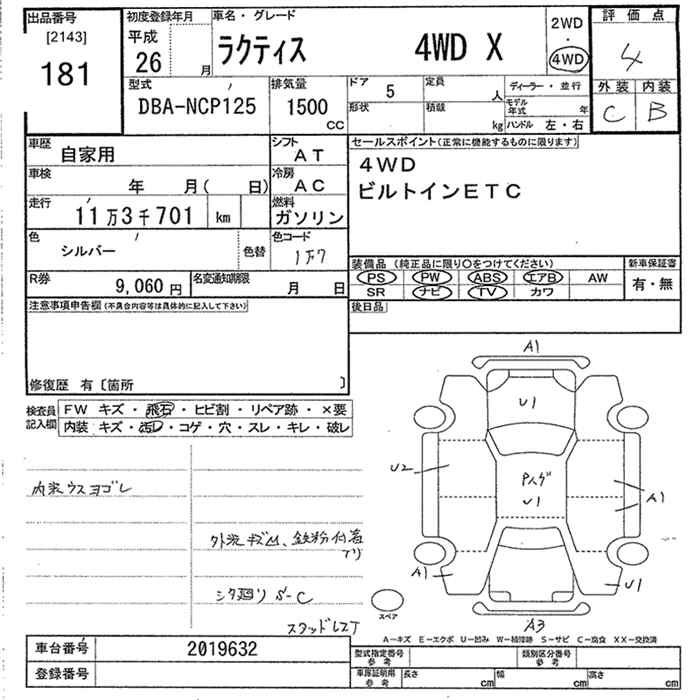 出品番号
[2143]
181
初度登録年月
平成
26
月
車名・グレード
ラクティス 4WD X
2WD
・
4WD
評価点
4
外装 内装
C B
型式
DBA-NCP125
排気量
1500
CC
ドア
5
形状
定員
人
積載
kg
ディーラー・並行
モデル年式 年
ハンドル 左・右
車歴
自家用
シフト
AT
車検
年 月( 日)
冷房
AC
走行
11万3千701 km
燃料
ガソリン
色
シルバー
色替
色コード
1F7
R券
9,060円
名変通知期限
月 日
セールスポイント(正常に機能するものに限ります)
4WD
ビルトインETC
装備品(純正品に限り○をつけてください)
PS PW ABS エアB AW
SR ナビ TV カワ
新車保証書
有・無
後日品
注意事項申告欄(不具合内容等は具体的に記入して下さい)
修復歴 有〔箇所 〕
検査員
記入欄
FW キズ・飛石・ヒビ割・リペア跡・×要
内装 キズ・汚レ・コゲ・穴・スレ・キレ・破レ
内装ウスヨゴレ
外装キズ凹、鉄粉付着
アリ
シタ廻リS-C
スタッドレスT
A1
U1
U2
Pスゲ
U1
A1
A1
U1
A3
スペア
A-キズ E-エクボ U-凹み W-補修跡 S-サビ C-腐食 XX-交換済
車台番号
2019632
登録番号
型式指定番号
参考
類別区分番号
参考
車庫証明用
参考
長さ cm
幅 cm
高さ cm